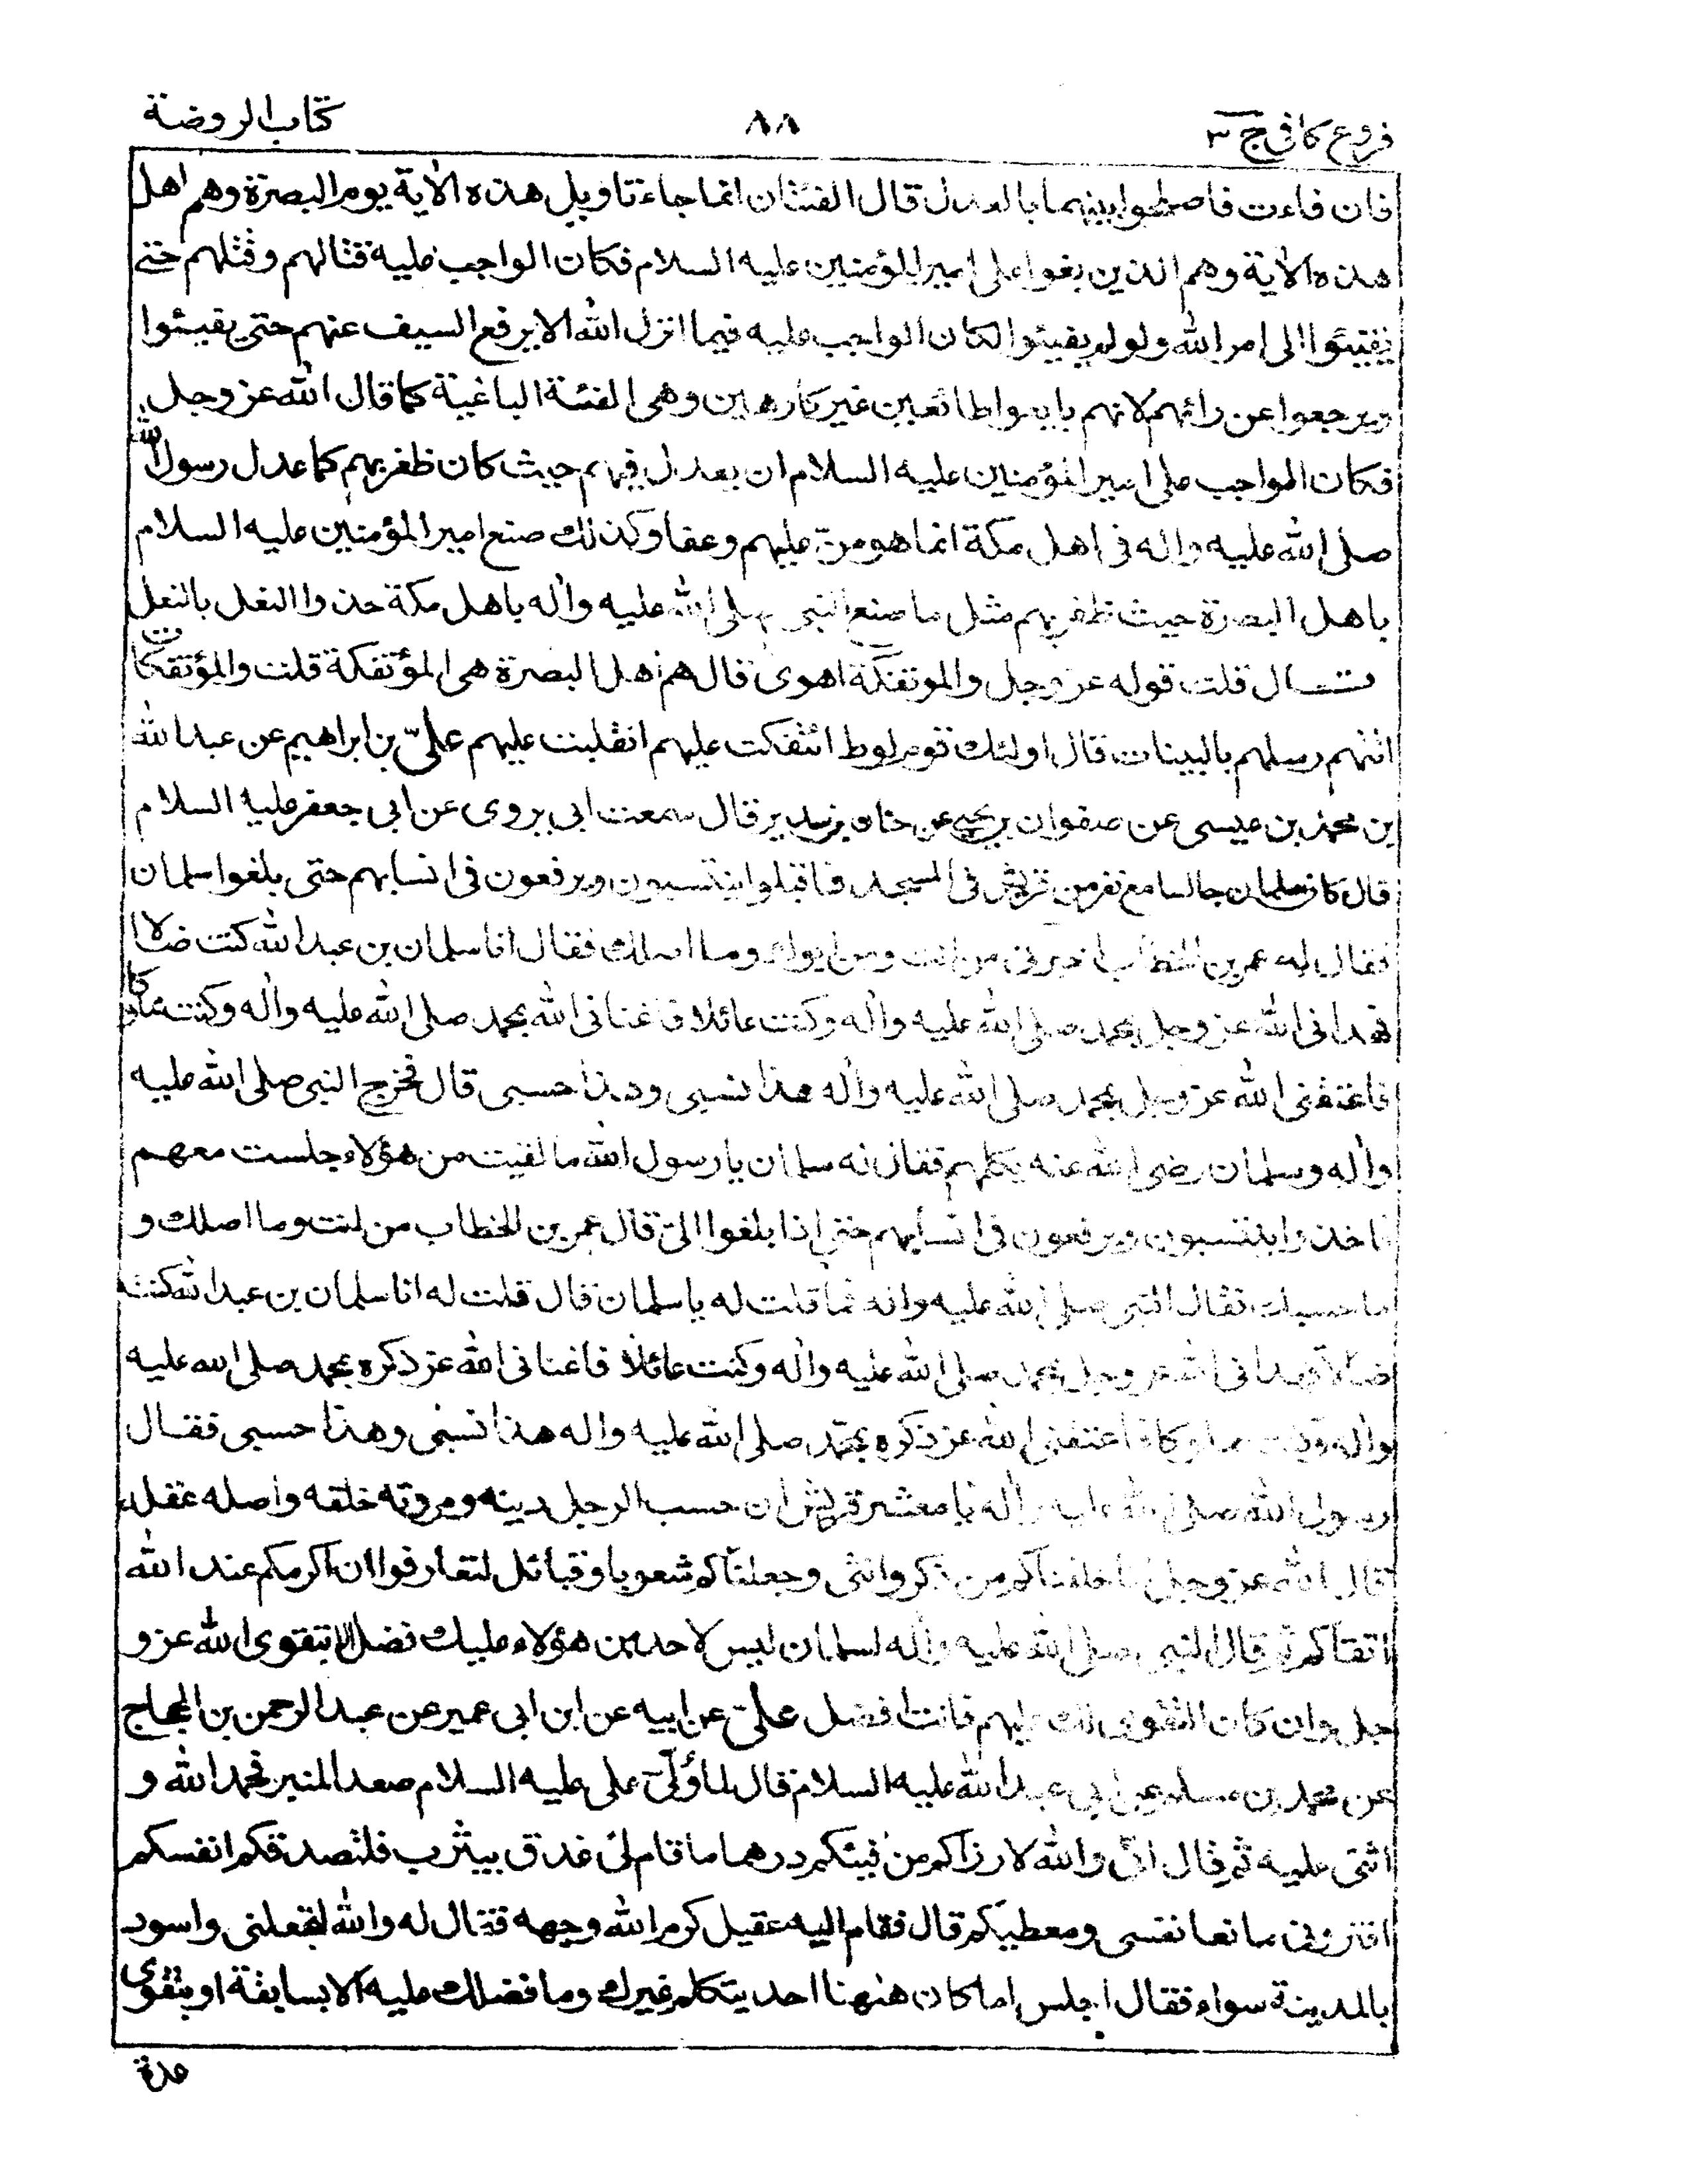 فروع كافى ج ٣
٨٨
كتاب الروضة
فان فاءت فاصلحوا بينهما بالعدل قال الفئتان انما جاء تاويل هذه الاية يوم البصرة وهم اهل
هذه الاية وهم الذين بغوا على امير المؤمنين عليه السلام فكان الواجب عليه قتالهم وقتلهم حتى
يفيئوا الى امر الله ولو لم يفيئوا لكان الواجب عليه فيما انزل الله الا يرفع السيف عنهم حتى يفيئوا
ويرجعوا عن رائهم لانهم بايعوا طائعين غير كارهين وهى الفئة الباغية كما قال الله عز وجل
فكان الواجب على امير المؤمنين عليه السلام ان يعدل فيهم حيث كان ظفر بهم كما عدل رسول الله
صلى الله عليه واله فى اهل مكة انما هو منّ عليهم وعفا وكذلك صنع امير المؤمنين عليه السلام
باهل البصرة حيث ظفر بهم مثل ما صنع النبى صلى الله عليه واله باهل مكة حذوا النعل بالنعل
قال قلت قوله عز وجل والموتفكة اهوى قال هم اهل البصرة هى المؤتفكة قلت والمؤتفكات
اتتهم رسلهم بالبينات قال اولئك قوم لوط ائتفكت عليهم انقلبت عليهم علىّ بن ابراهيم عن عبد الله
بن محمد بن عيسى عن صفوان بن يحيى عن حنان بن سدير قال سمعت ابى يروى عن ابى جعفر عليه السلام
قال كان سلمان جالسا مع نفر من قريش فى المسجد فاقبلوا ينتسبون ويرفعون فى انسابهم حتى بلغوا سلمان
فقال له عمر بن الخطاب اخبرنى من انت ومن ابوك وما اصلك فقال انا سلمان بن عبد الله كنت ضالا
فهدانى الله عز وجل بمحمد صلى الله عليه واله وكنت عائلا فاغنانى الله بمحمد صلى الله عليه واله وكنت مملوكا
فاعتقنى الله عز وجل بمحمد صلى الله عليه واله هذا نسبى وهذا حسبى قال فخرج النبى صلى الله عليه
واله وسلمان رضى الله عنه يكلمهم فقال له سلمان يا رسول الله ما لقيت من هؤلاء جلست معهم
فاخذوا ينتسبون ويرفعون فى انسابهم حتى اذا بلغوا الىّ قال عمر بن الخطاب من انت وما اصلك و
ما حسبك فقال النبى صلى الله عليه واله فما قلت له يا سلمان قال قلت له انا سلمان بن عبد الله كنت
ضالا فهدانى الله عز وجل بمحمد صلى الله عليه واله وكنت عائلا فاغنانى الله عز ذكره بمحمد صلى الله عليه
واله وكنت مملوكا فاعتقنى الله عز ذكره بمحمد صلى الله عليه واله هذا نسبى وهذا حسبى فقال
رسول الله صلى الله عليه واله يا معشر قريش ان حسب الرجل دينه ومروته خلقه واصله عقله
قال الله عز وجل انا خلقناكم من ذكر وانثى وجعلناكم شعوبا وقبائل لتعارفوا ان اكرمكم عند الله
اتقاكم ثم قال النبى صلى الله عليه واله لسلمان ليس لاحد من هؤلاء عليك فضل الا بتقوى الله عز و
جل وان كان التقوى لك عليهم فانت افضل علىّ عن ابيه عن ابن ابى عمير عن عبد الرحمن بن الحجاج
عن محمد بن مسلم عن ابى عبد الله عليه السلام قال لما ولّى على عليه السلام صعد المنبر فحمد الله و
اثنى عليه ثم قال انى والله لا ارزاكم من فيئكم درهما ما قام لى عذق بيثرب فلتصدقكم انفسكم
افترونى مانعا نفسى ومعطيكم قال فقام اليه عقيل كرم الله وجهه فقال له والله لتجعلنى واسود
بالمدينة سواء فقال اجلس اما كان ههنا احد يتكلم غيرك وما فضلك عليه الا بسابقة او بتقوى